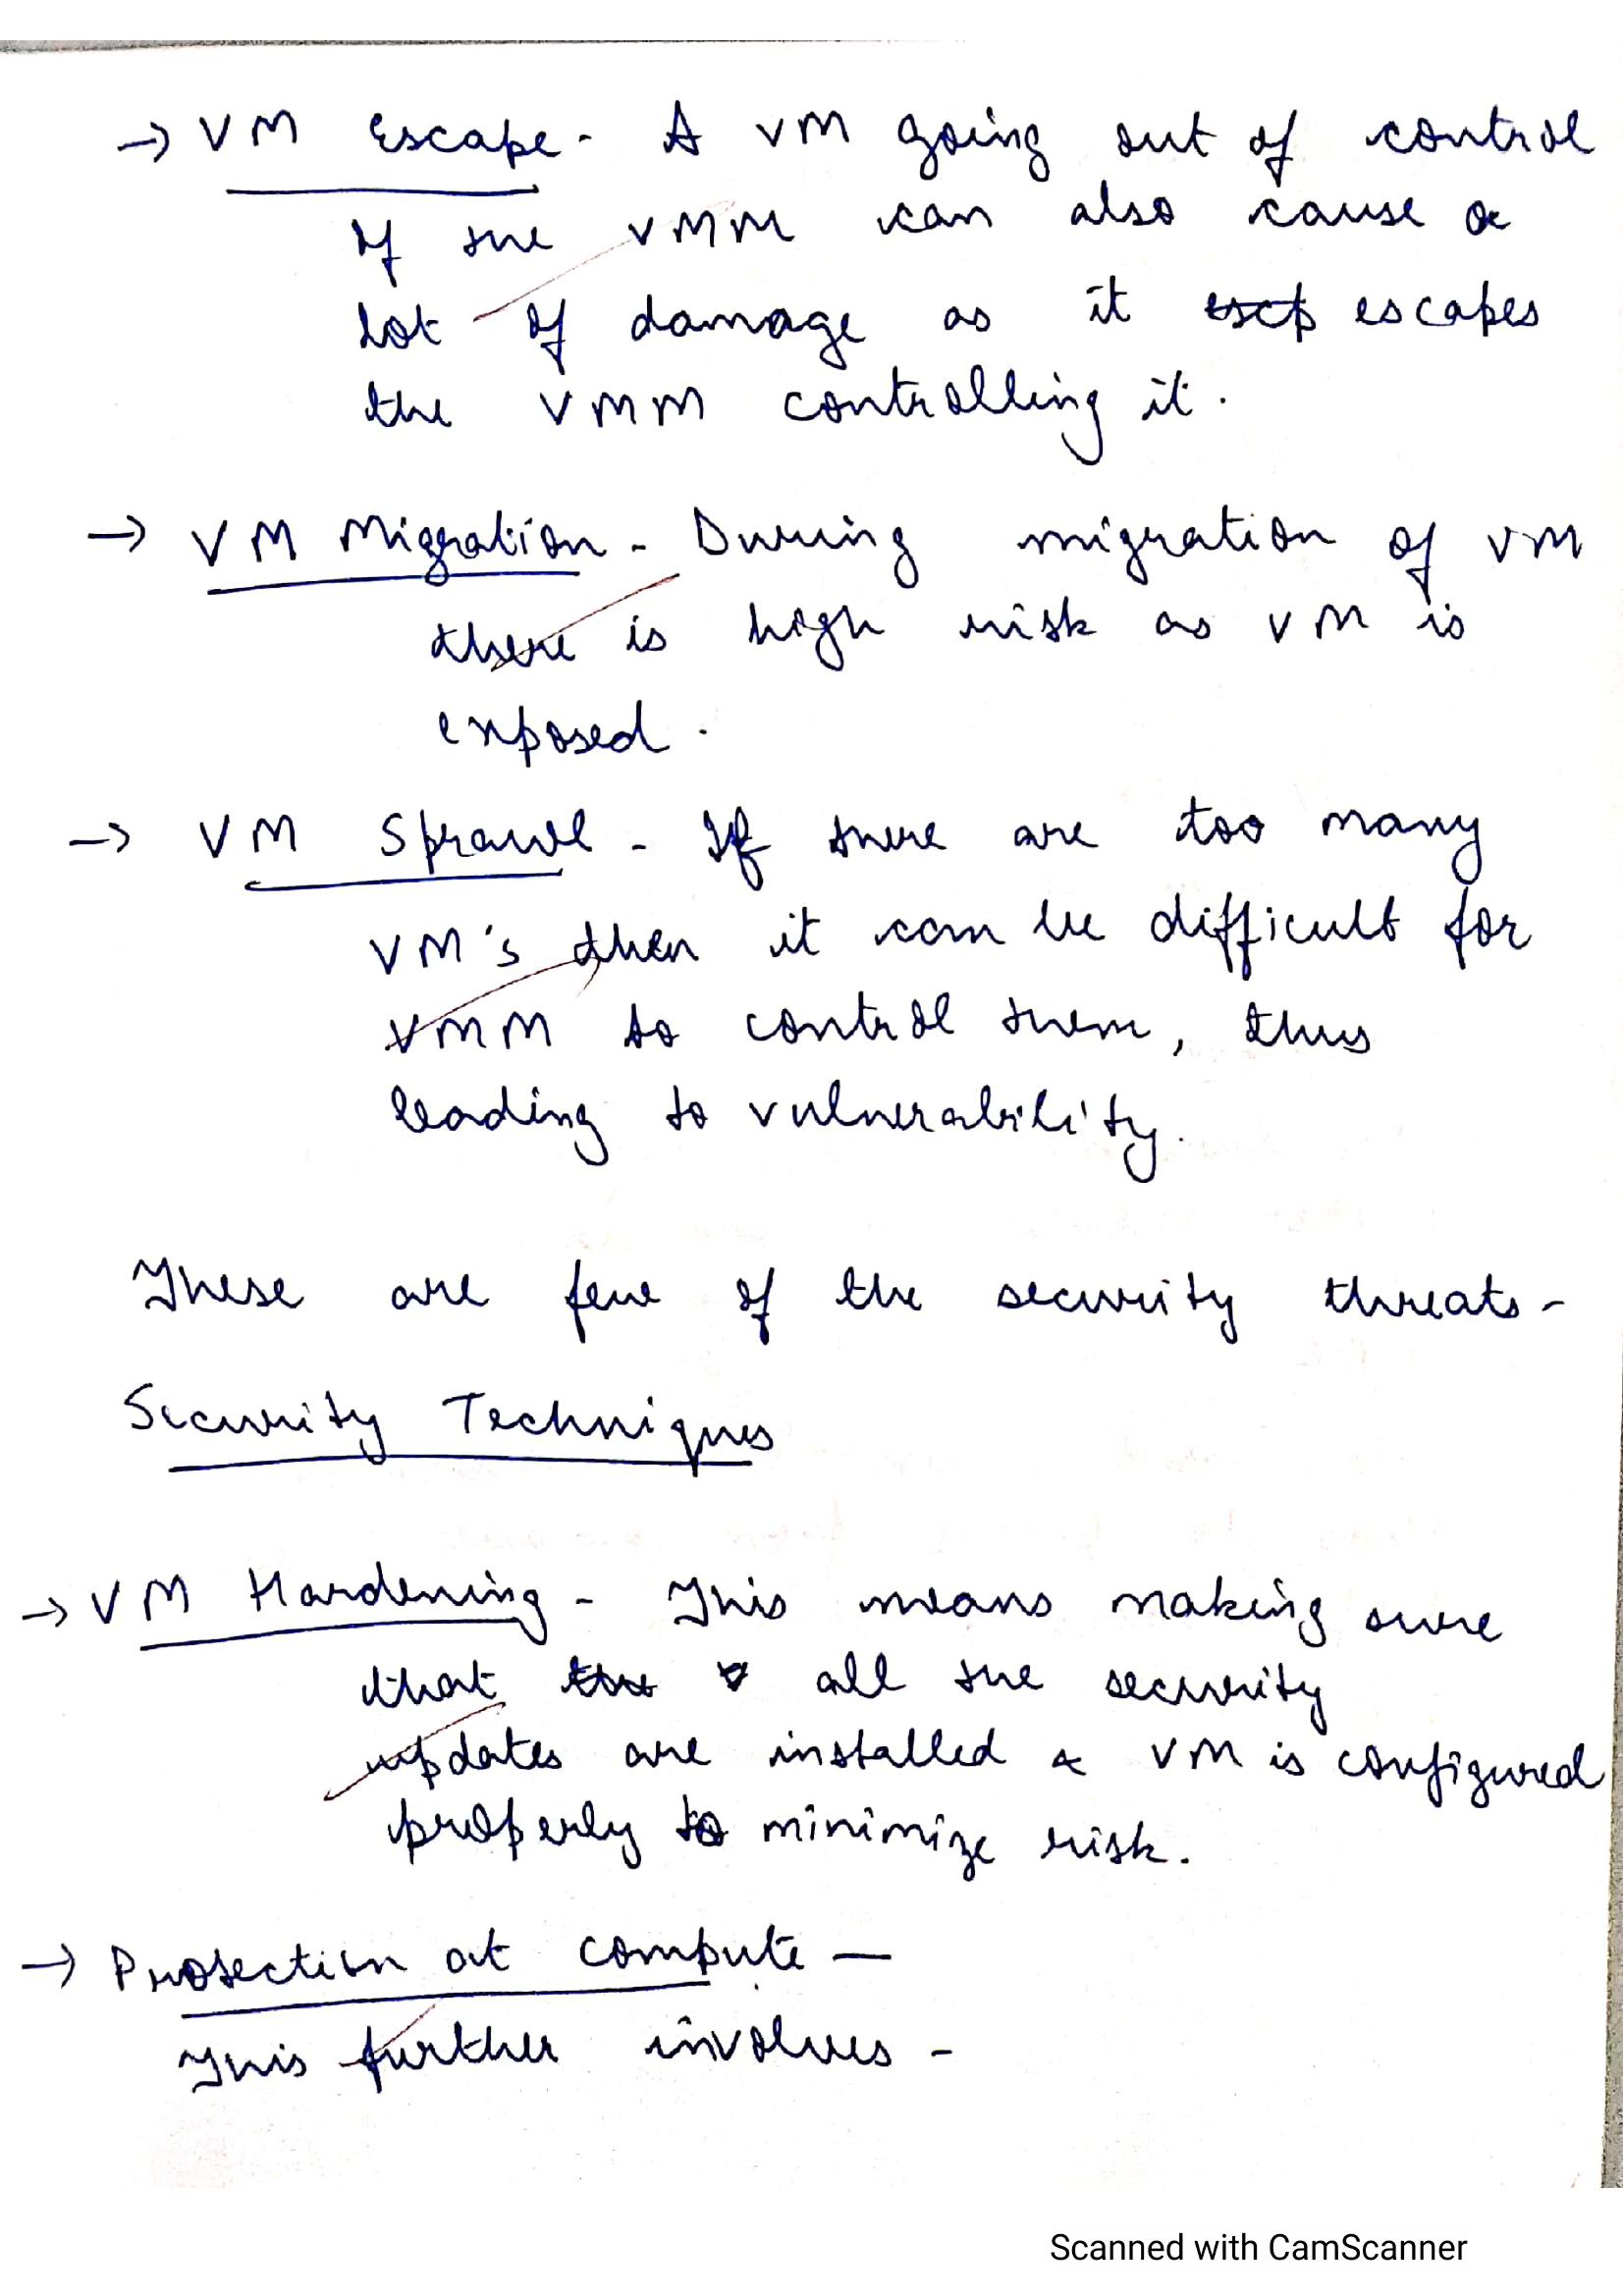 → VM Escape - A VM going out of control
of the VMM can also cause a
lot of damage as it escapes
the VMM controlling it.
→ VM Migration - During migration of VM
there is high risk as VM is
exposed.
→ VM Sprawl - If there are too many
VM's then it can be difficult for
VMM to control them, thus
leading to vulnerability.
These are few of the security threats -
Security Techniques
→ VM Hardening - This means making sure
that all the security
updates are installed & VM is configured
properly to minimize risk.
→ Protection at compute —
This further involves -
Scanned with CamScanner